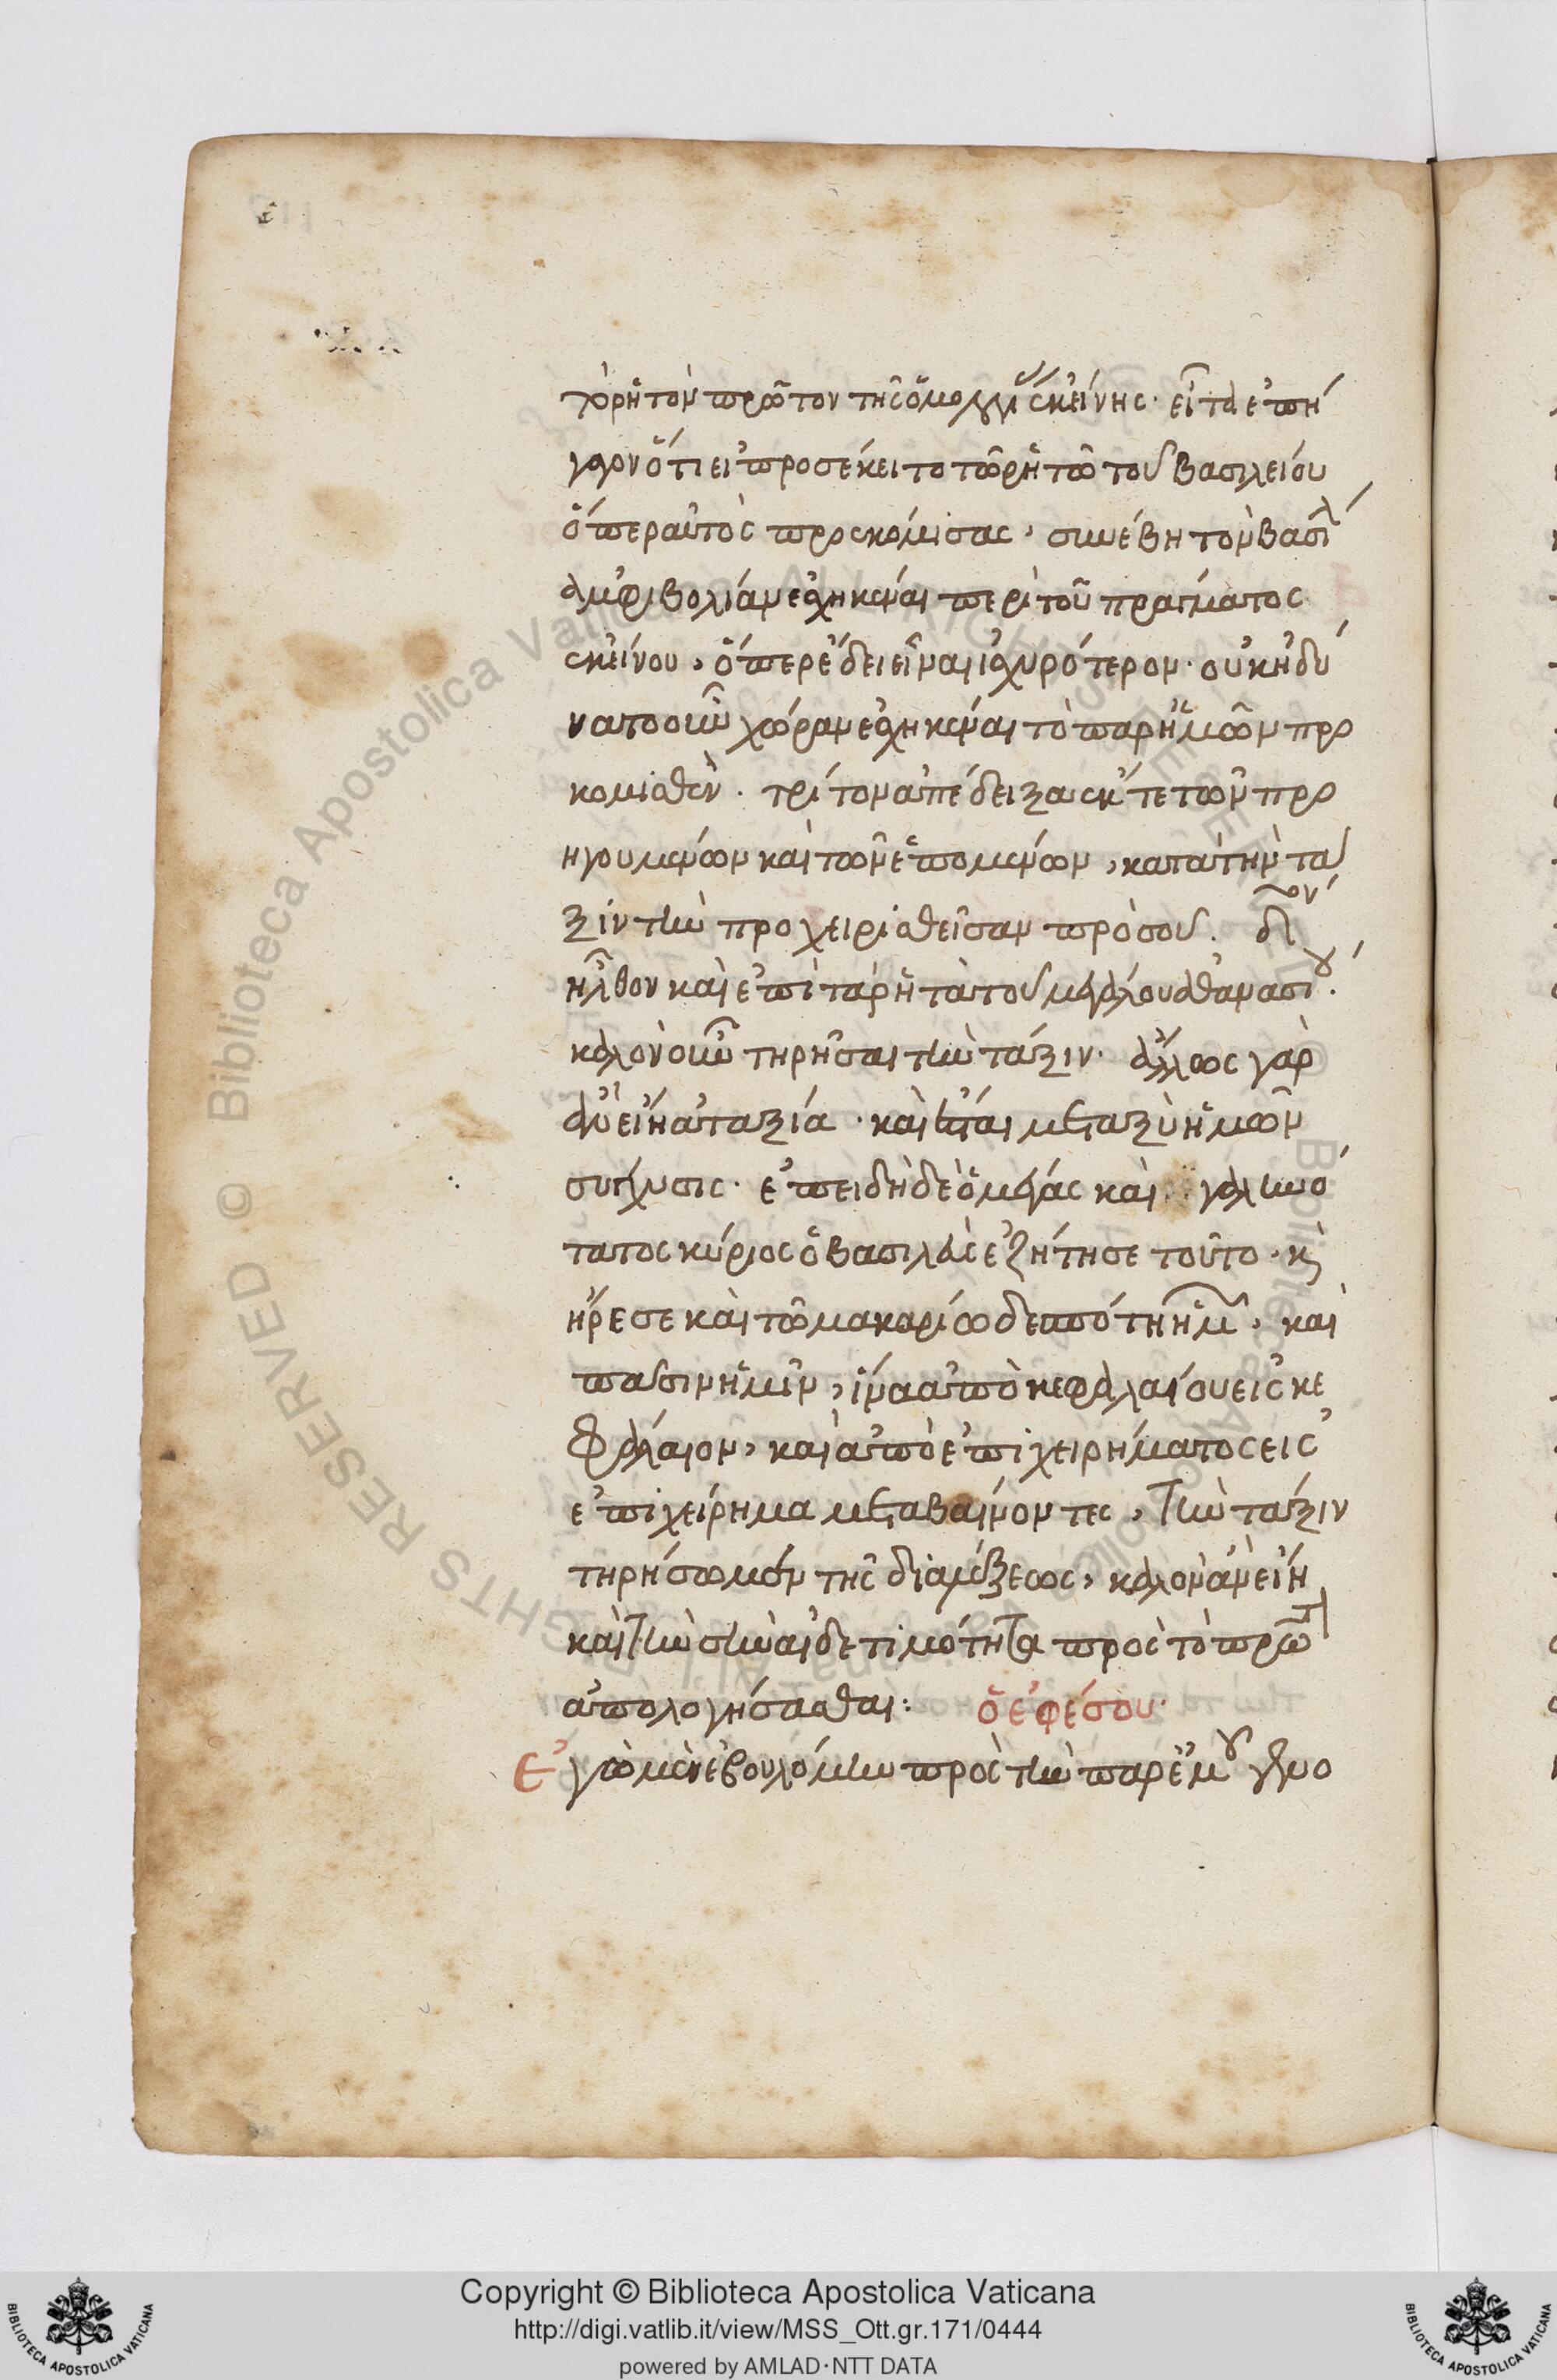 τὸ ῥητὸν πρῶτον τῆς ὁμολίας ἐκείνης· εἶτα ἐπή
γαγον ὅτι εἰ προσέκειτο τῶ ῥητῶ τοῦ βασιλείου
ὅπερ αὐτὸς προσκομίσας, συνέβη τὸν βασίλ
ἀμφιβολίαν ἐσχηκέναι περὶ τοῦ πράγματος
ἐκείνου, ὅπερ ἔδει εἶναι ἰσχυρότερον· οὐκ ἠδύ
νατο οὖν χώραν ἐσχηκέναι τὸ παρ ἡμῶν προ
κομισθέν. τρίτον ἀπέδειξα ἐκ τε τῶν προ
ηγουμένων καὶ τῶν ἑπομένων, κατὰ τὴν τά
ξιν τὴν προχειρισθεῖσαν πρὸ σοῦ. δι ὃν
ἦλθον καὶ ἐπὶ τὰ ῥητὰ τοῦ μεγάλου ἀθανασίου.
καλὸν οὖν τηρῆσαι τὴν τάξιν· ἄλλως γὰρ
ἂν εἴη ἀταξία· καὶ ἔσται μεταξὺ ἡμῶν
σύγχυσις· ἐπειδὴ δὲ ὁ μέγας καὶ γαληνό
τατος κύριος ὁ βασιλεὺς ἐζήτησε τοῦτο· κ
ἤρεσε καὶ τῶ μακαρίω δεσπότη ἡμ, καὶ
πᾶσιν ἡμῖν, ἵνα ἀπὸ κεφαλαίου εἰς κε
φάλαιον, καὶ ἀπὸ ἐπιχειρήματος εἰς
ἐπιχείρημα μεταβαίνοντες, τὴν τάξιν
τηρήσωμεν τῆς διαλέξεως, καλὸν ἂν εἴη
καὶ τὴν σὴν αἰδεσιμότητα πρὸς τὸ πρῶτ
ἀπολογήσασθαι: ὁ ἐφέσου·
Ἐγὼ μὲν ἐβουλόμην πρὸς τὴν παρ ἐμοῦ γενο
Copyright © Biblioteca Apostolica Vaticana
http://digi.vatlib.it/view/MSS_Ott.gr.171/0444
powered by AMLAD·NTT DATA